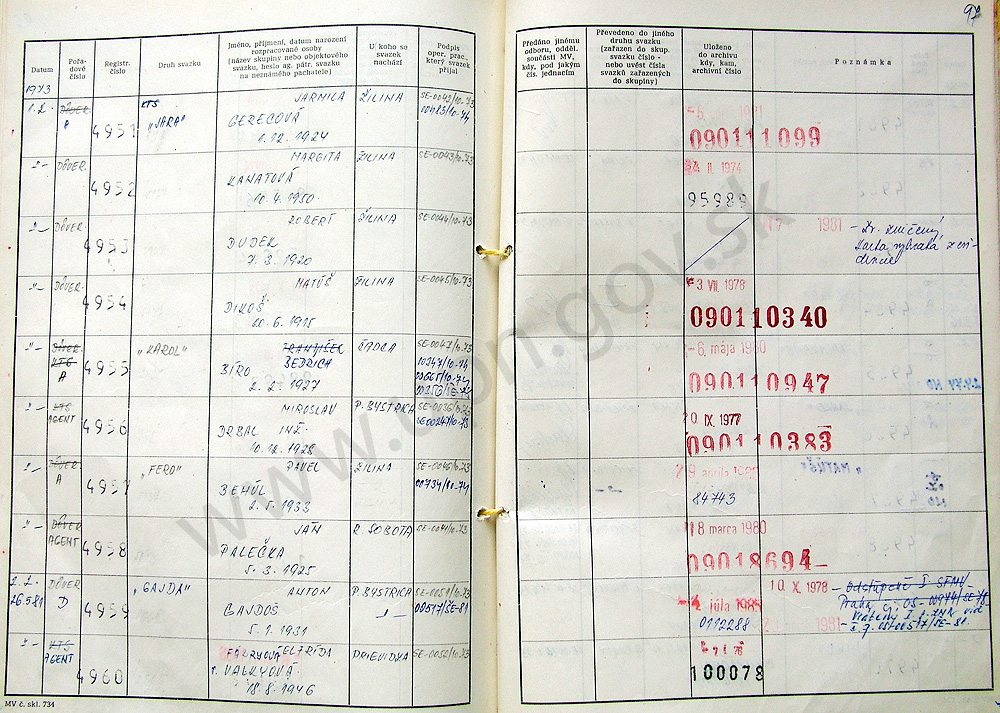 92
Datum
Pořadové číslo
Registr. číslo
Druh svazku
Jméno, příjmení, datum narození
rozpracované osoby
(název skupiny nebo objektového
svazku, heslo ag. pátr. svazku
na neznámého pachatele)
U koho se
svazek
nachází
Podpis
oper. prac.,
který svazek
přijal
Předáno jinému
odboru, odděl.
součásti MV,
kdy, pod jakým
čís. jednacím
Převedeno do jiného
druhu svazku
(zařazen do skup.
svazku číslo -
nebo uvést čísla
svazků zařazených
do skupiny)
Uloženo
do archivu
kdy, kam,
archivní číslo
Poznámka
1973
1.2. DŮVER. KTS JARMILA ŽILINA SE-0042/10-73
A 4951 "JARA" GERECOVÁ 00483/10-74
1.12.1924
1981
090111099
-"- DŮVER. MARGITA ŽILINA SE-0043/10-73
4952 KANATOVÁ
10.4.1950
II. 1974
95989
-"- DŮVER. ROBERT ŽILINA SE-0044/10-73
4953 DUDEK
7.3.1920
1981
-"- DŮVER. MATÚŠ ŽILINA SE-0045/10-73
4954 DIKOŠ
20.6.1915
3. VII. 1978
090110340
-"- DŮVER. "KAROL" FRANTIŠEK ČADCA SE-0047/10-73
KTS 4955 BEDRICH
A BÍRO
2.2.1927
-6. mája 1980
090110947
-"- KTS MIROSLAV P. BYSTRICA SE-0036/10-73
AGENT 4956 DRBAL INŽ. SE00247/10-73
10.12.1928
0 IX. 1977
090110383
-"- DŮVER. "FERO" PAVEL ŽILINA SE-0046/10-73
A 4957 BEHÚL 00734/80-74
2.5.1933
"MATÚŠ"
84743
-"- DŮVER JÁN R. SOBOTA SE-0041/10-73
AGENT 4958 PALEČKA
5.3.1925
18 marca 1980
09018694
2.2. DŮVER "GAJDA" ANTON P. BYSTRICA SE-0051/10-73
26.5.81 D 4959 GAJDOŠ -"- 00517/SE-81
5.1.1931
10.X.1978 - Odstúpené I. SFMV
Praha, čj. OS-00974/SE-78
-4. júla 1985
0112288 1981
-"- KTS ELFRÍDA PRIEVIDZA SE-0052/10-73
AGENT 4960 r. VALKYOVÁ
18.8.1946
100078
MV č. skl. 734
www.upn.gov.sk